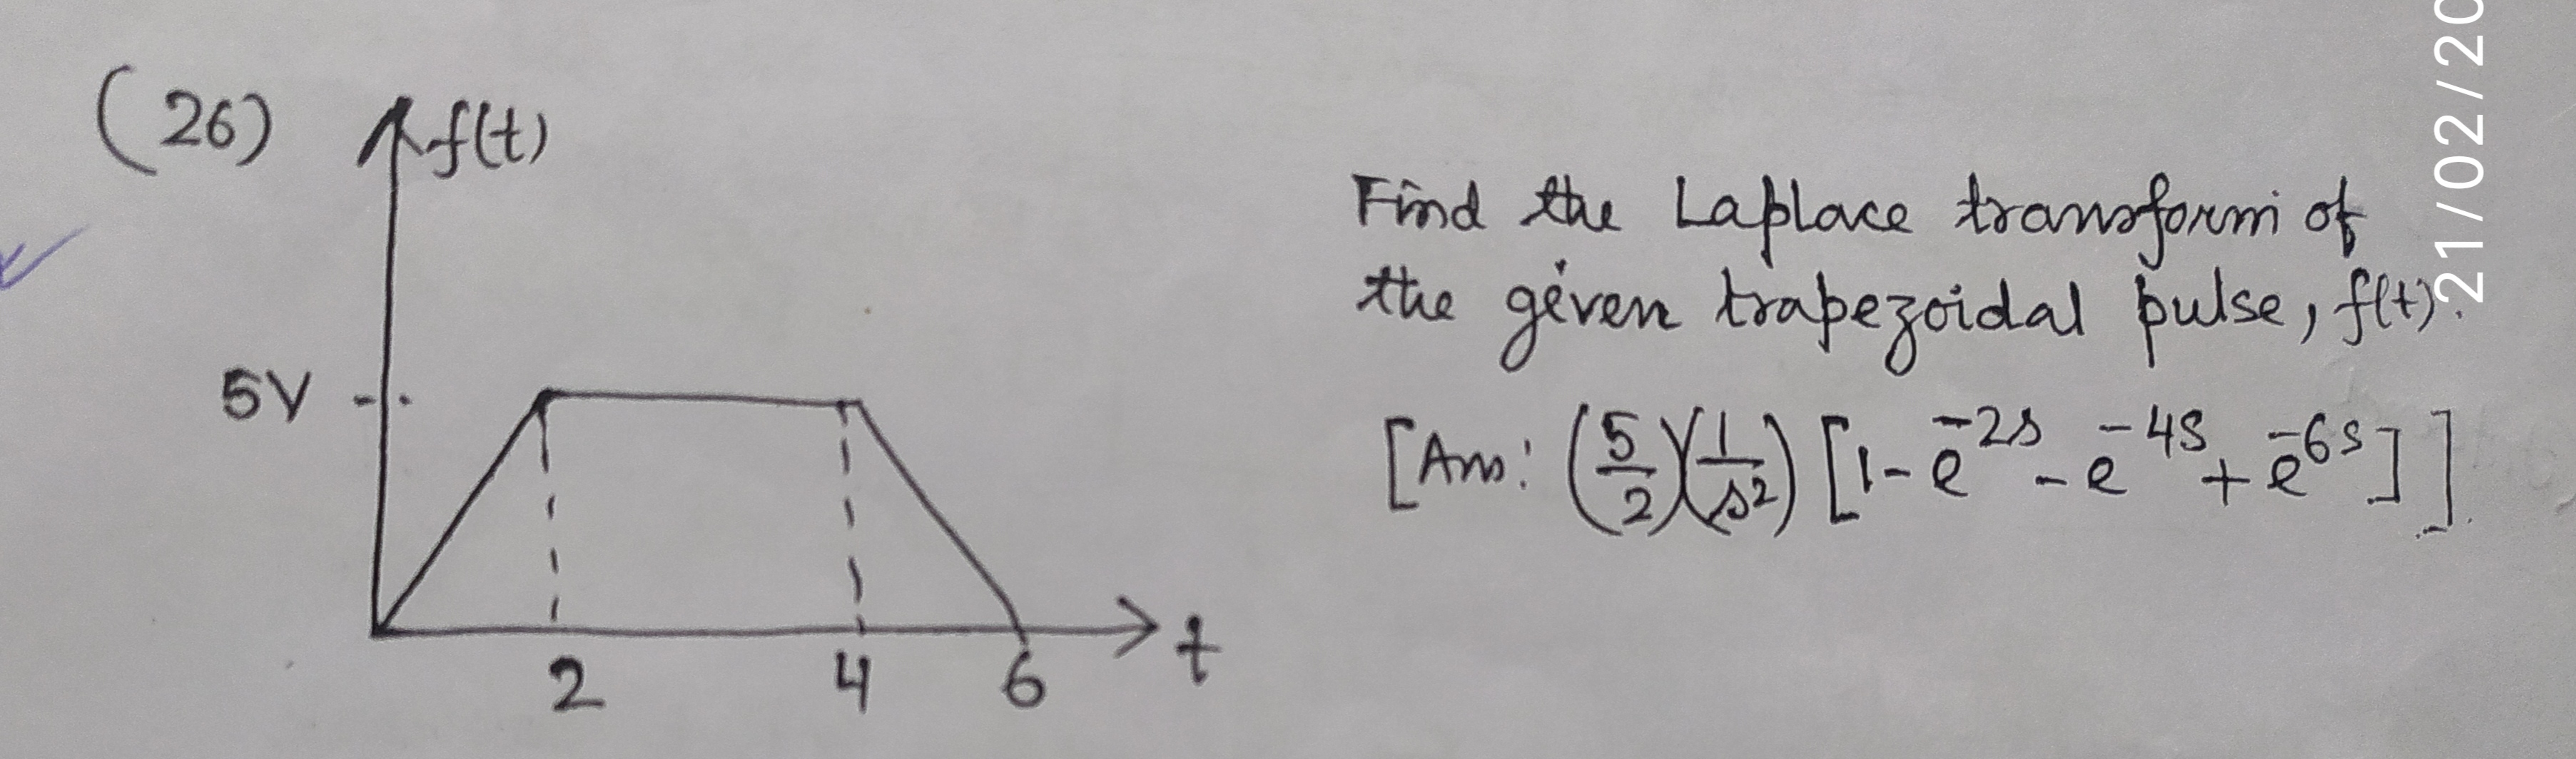 (26)
f(t)
5V
2 4 6 t
Find the Laplace transform of
the given trapezoidal pulse, f(t).
[Ans: (5/2)(1/s²) [1-e^-2s - e^-4s + e^-6s]].
21/02/20